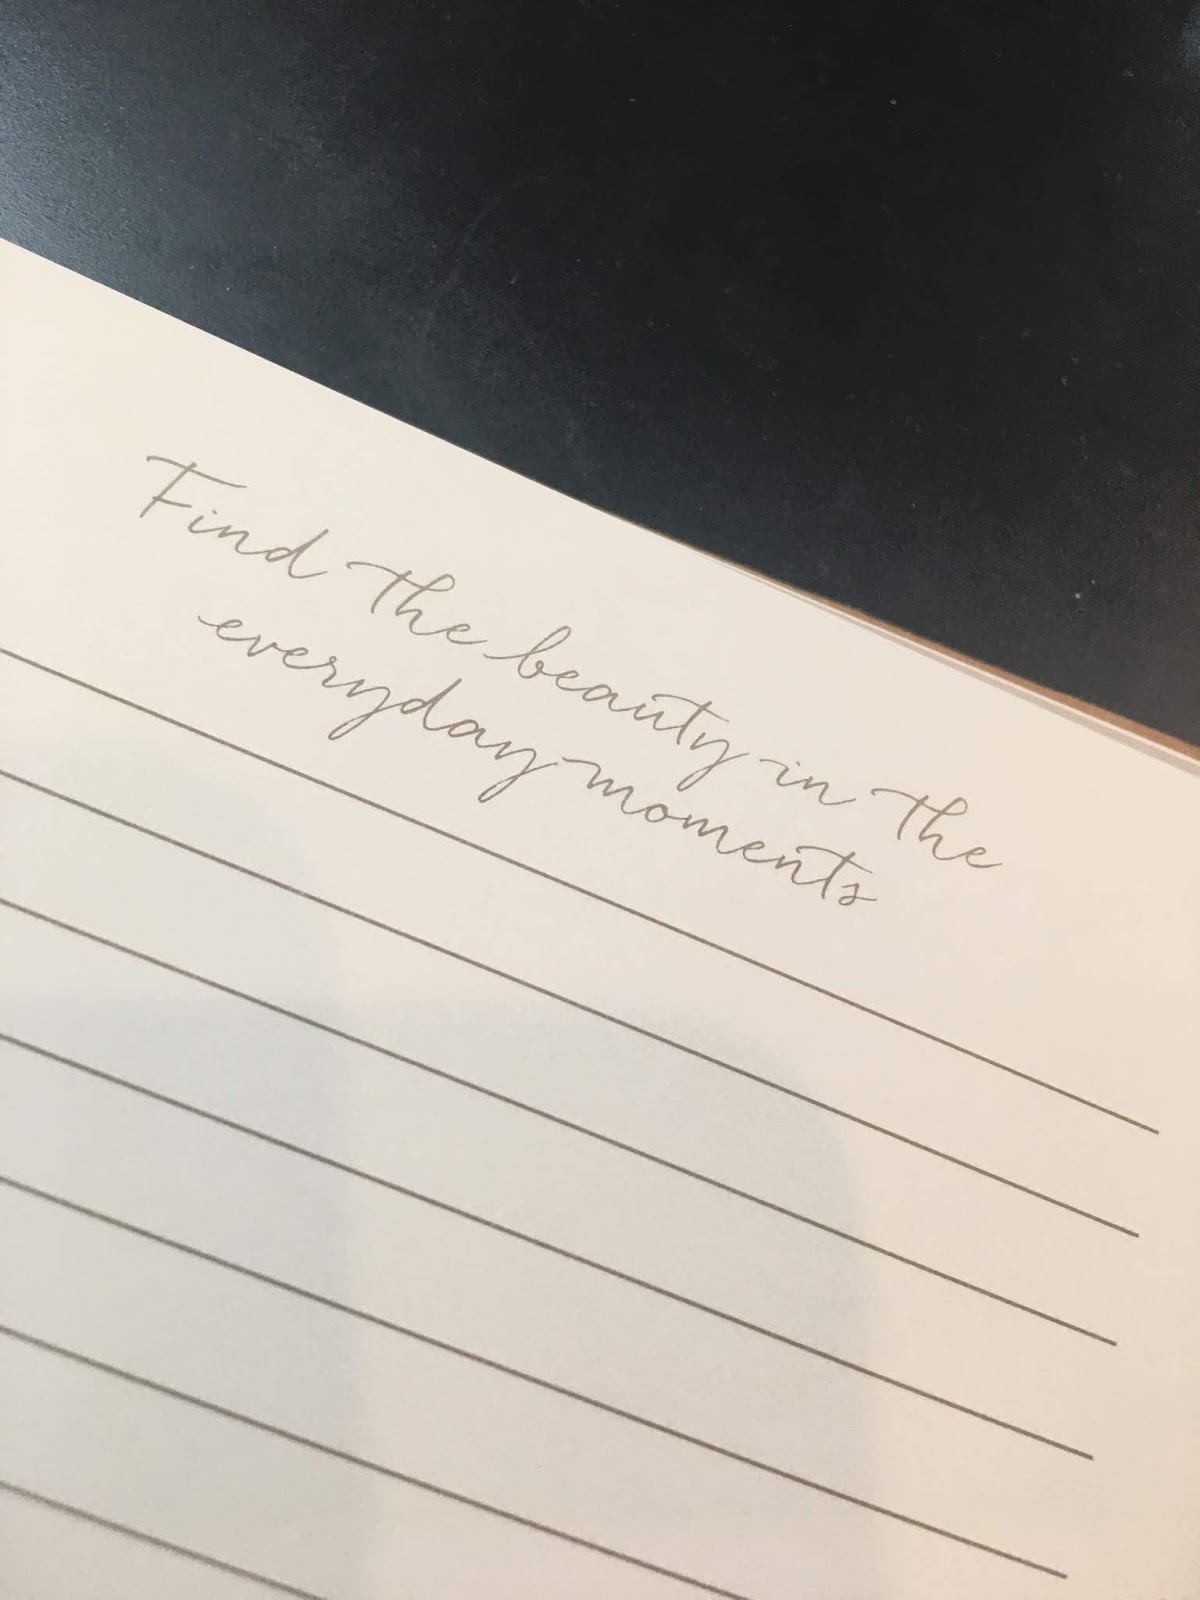 Find the beauty in the
everyday moments